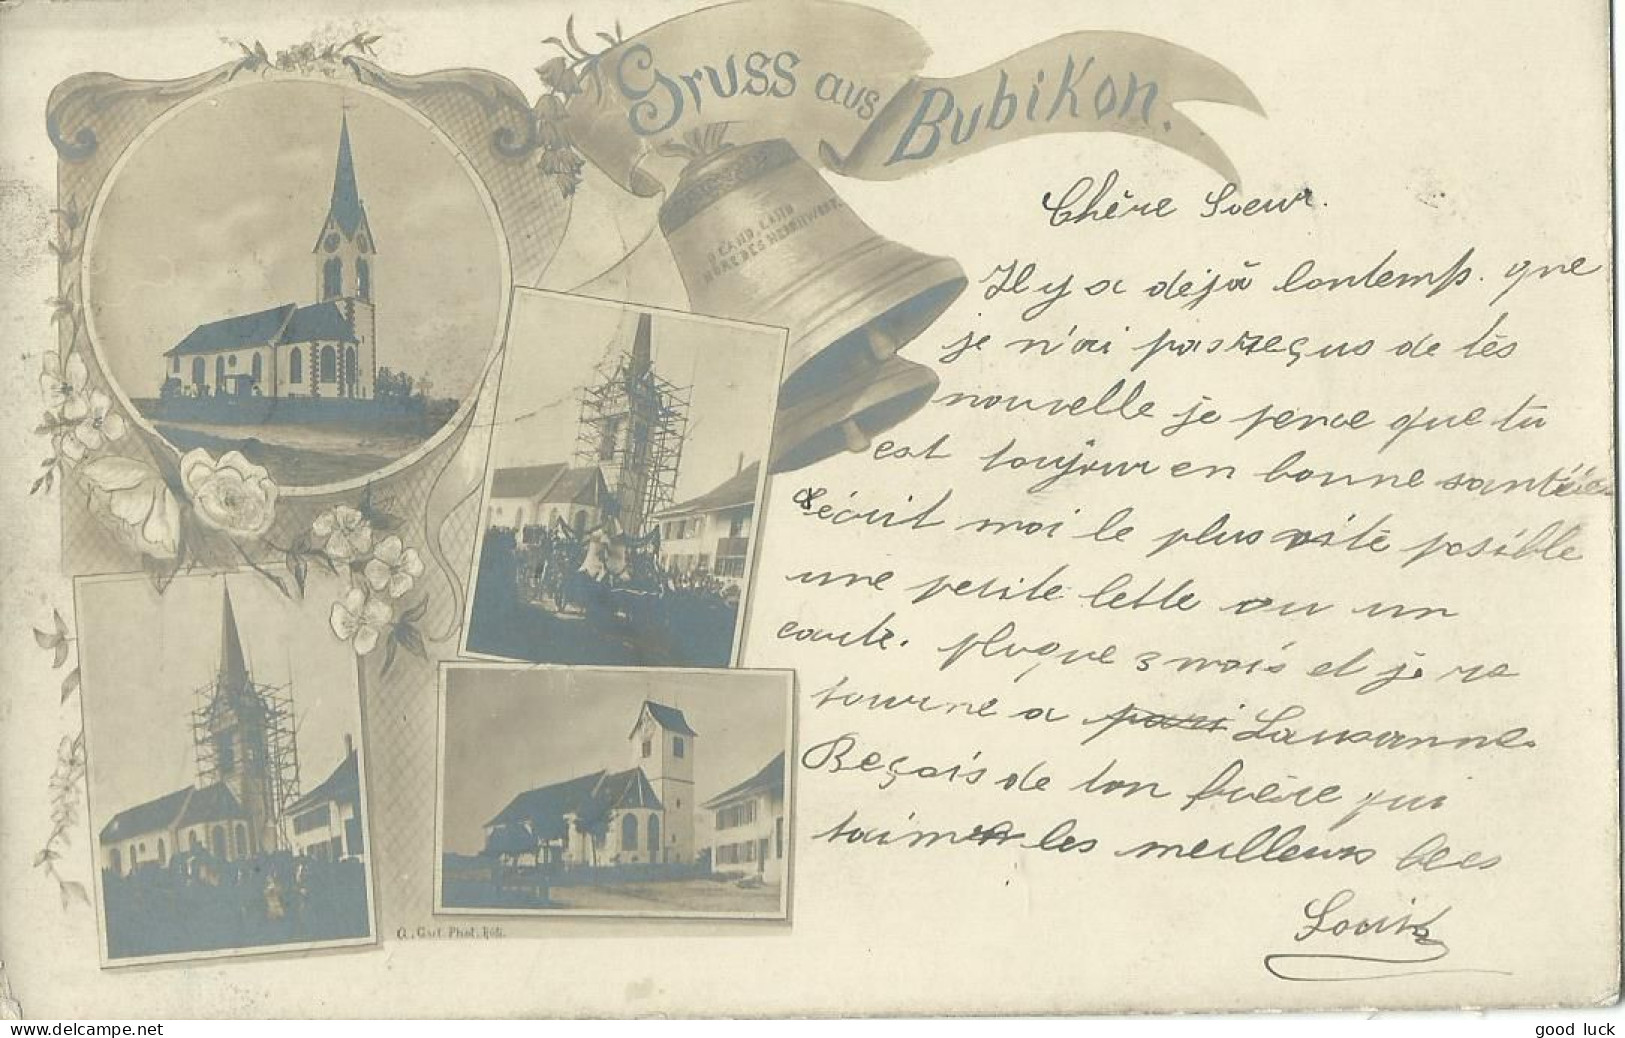 Gruss aus Bubikon.
O LAND, LAND
HÖRE DES HERRN WORT.
Chère Soeur.
Il y a déjà lontemp. que
je n'ai pas reçus de tés
nouvelle je pence que tu
est toujour en bonne santée
écrit moi le plus vite posible
une petite lettle ou un
carte. pluque 3 mois et je re
tourne a pari Lausanne.
Reçois de ton frère qui
taime les meilleurs
Louis
G. Gut. Phot. Rüti.
www.delcampe.net
good_luck